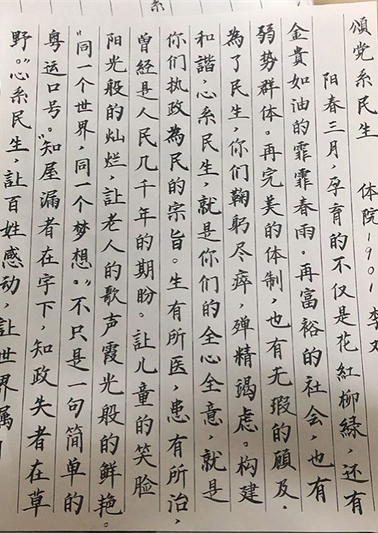 系
頌党系民生 体院1901 李
阳春三月，孕育的不仅是花紅柳綠，还有
金貴如油的霏霏春雨。再富裕的社会，也有
弱势群体。再完美的体制，也有无瑕的顾及.
為了民生，你们鞠躬尽瘁，殚精竭虑。构建
和諧，心系民生，就是你们的全心全意，就是
你们执政為民的宗旨。生有所医，患有所治，
曾經是人民几千年的期盼。訨儿童的笑脸
阳光般的灿烂，訨老人的歌声霞光般的鲜艳。
“同一个世界，同一个梦想。”不只是一句简单的
奥运口号。“知屋漏者在宇下，知政失者在草
野。”心系民生，訨百姓感动，訨世界属